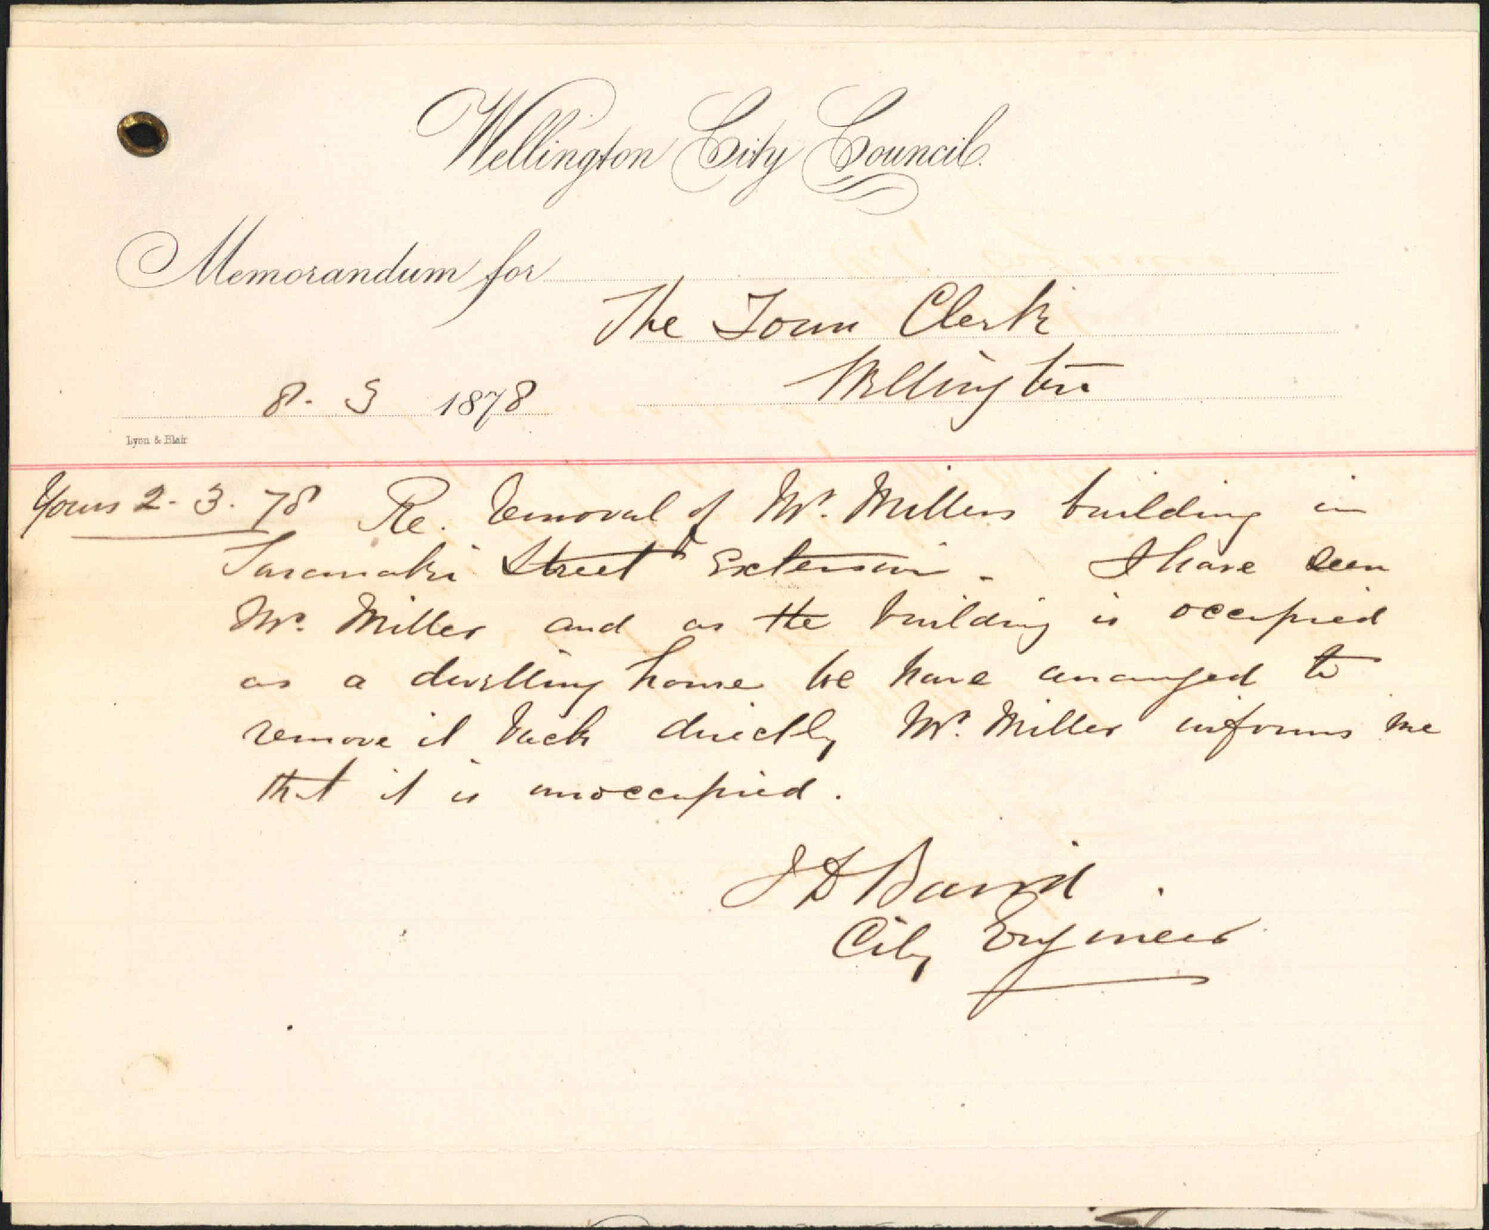 Wellington City Council.
Memorandum for
The Town Clerk
Wellington
8. 3 1878
Lyon & Blair
Yours 2. 3. 78 Re. removal of Mr. Millers building in
Taranaki Street Extension. I have seen
Mr. Miller and as the building is occupied
as a dwelling house we have arranged to
remove it back directly Mr. Miller informs me
that it is unoccupied.
J D Baird
City Engineer